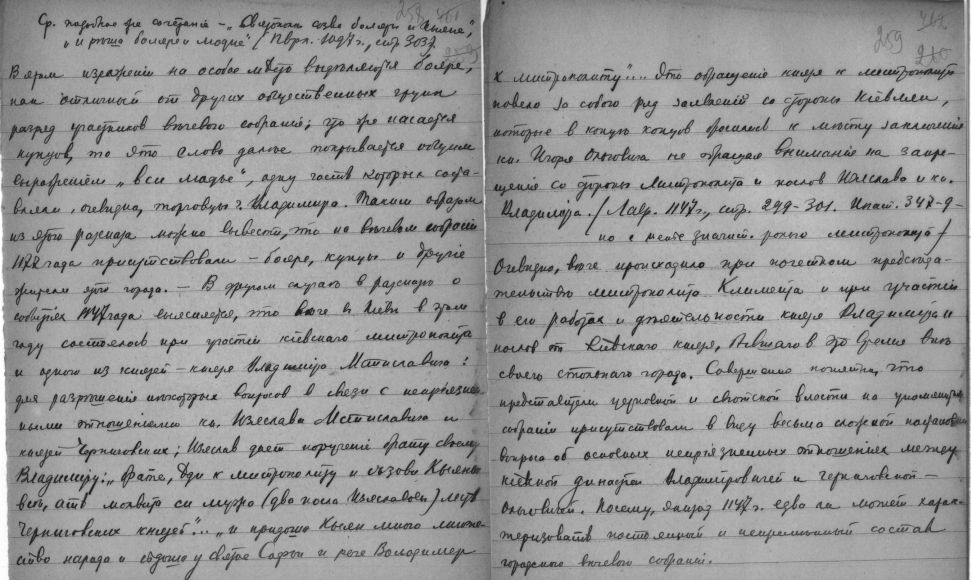 Ср. подобное же сочетание – „Святополкъ созва боляръ и Кыянѣ",
„и рѣша боляре и людие" (Лавр. 1097 г., стр. 303)
В этом изражении на особое мѣсто выдѣляются бояре,
как отличный от других общественных групп
разряд участников вѣчевого собрания; что же касается
купцов, то это слово далее покрывается общим
выражением „вси людье", одну часть которых состав-
вляли, очевидно, торговцы г. Владимира. Таким образом
из этого разсказа можно вывести, что на вѣчевом собрании
1177 года присутствовали – бояре, купцы и другие
жители этого города. – В другом случаѣ в разсказѣ о
событиях 1147 года выясняется, что вѣче в Киевѣ в этом
году состоялось при участии киевскаго митрополита
и одного из князей – князя Владимира Мстиславича:
для разрѣшения нѣкоторых вопросов в связи с неприязнен-
ными отношениями кн. Изяслава Мстиславича и
князей Черниговских; Изяслав дает поручение брату своему
Владимиру: „Брате, ѣди к митрополиту и съзови Кыянъ
вси, ать молвита си мужа (два посла Изяславлеи) лесть
Черниговских князей"... „и придоша Кыян много множе-
ство народа и сѣдоша у святое Софьи и рече Володимер
259
210
к митрополиту"... Это обращение князя к митрополиту
повело за собою ряд заявлений со стороны Киевлян,
которые в концѣ концов бросились к мѣсту заключения
кн. Игоря Ольговича не обращая внимания на запре-
щение со стороны митрополита и послов Изяслава и кн.
Владимира. (Лавр. 1147 г., стр. 299-301. Ипат. 347-9-
но с менее значит. ролью митрополита)
Очевидно, вѣче происходило при почетном предсѣда-
тельствѣ митрополита Климента и при участии
в его работах и дѣятельности князя Владимира и
послов от Киевскаго князя, бывшаго в это время внѣ
своего стольнаго города. Совершенно понятно, что
представители церковной и свѣтской власти на упомянутом
собрании присутствовали в виду весьма сложной постановки
вопроса об основных неприязненных отношениях между
киевской династией Владимировичей и черниговской –
Ольговичей. Посему, эпизод 1147 г. едва ли может харак-
теризовать постоянный и непремѣнный состав
городского вѣчевого собрания.